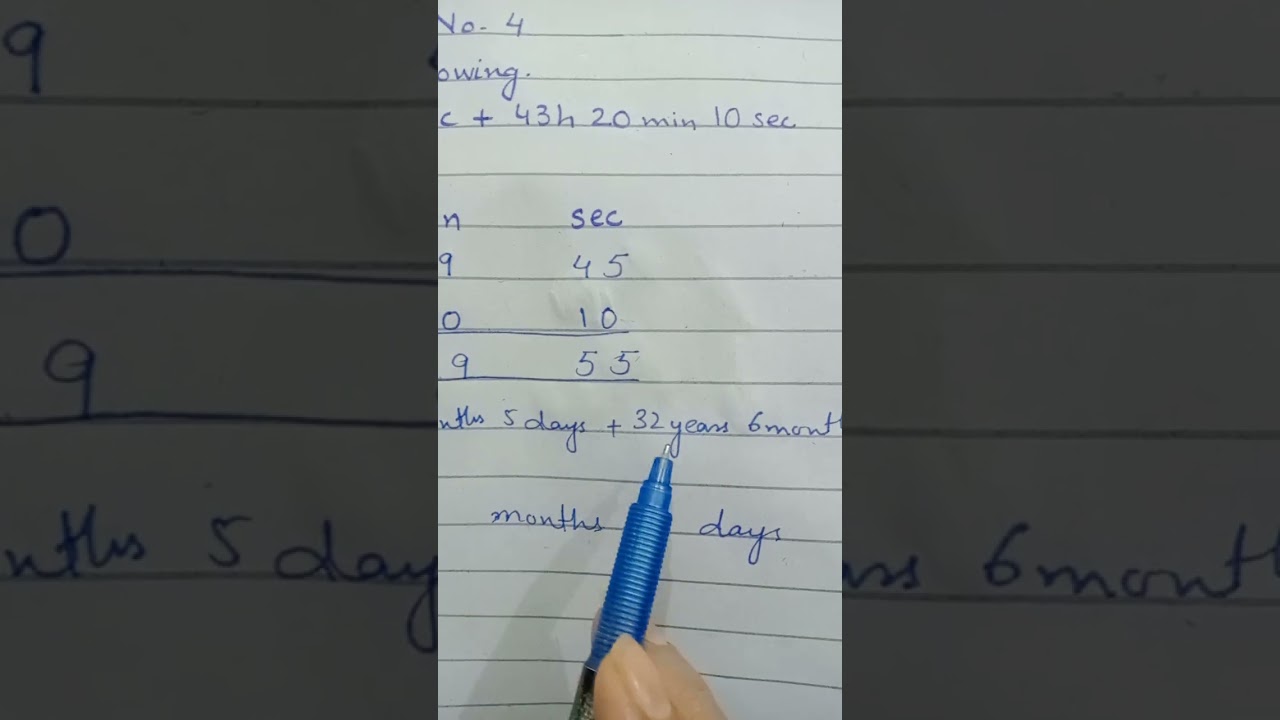 No. 4
owing.
c + 43h 20 min 10 sec
n sec
9 45
0 10
9 55
nths 5 days + 32 years 6 month
months days